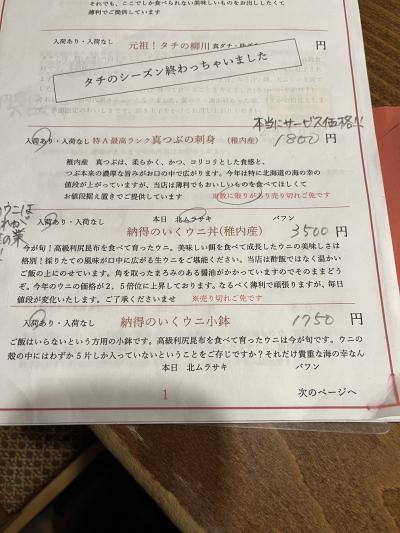 それでも、ここでしか食べられない美味しいものをお出ししたくて
薄利でご提供しています
入荷あり・入荷なし 元祖！タチの柳川 円
タチのシーズン終わっちゃいました
本当にサービス価格!!
入荷あり・入荷なし 特A最高ランク 真つぶの刺身 （稚内産） 1800 円
稚内産 真つぶは、柔らかく、かつ、コリコリとした食感と、
つぶ本来の濃厚な旨みがお口の中で広がります。今年は特に北海道の海の幸の
値段が上がっていますが、当店は薄利でもおいしいものを食べてほしくて
お値段据え置きでご提供しています ※数に限りがあり売り切れご免です
本日 北ムラサキ バフン
入荷あり・入荷なし 納得のいくウニ丼（稚内産） 3500 円
今が旬！高級利尻昆布を食べて育ったウニ。美味しい餌を食べて成長したウニの美味しさは
格別！採りたての風味が口中に広がる生ウニをご堪能ください。当店は酢飯ではなく温かい
ご飯の上にのせています。角を取ったまろみのある醤油がかかっていますのでそのままどう
ぞ。今年のウニの価格が２，５倍位に上昇しております。なるべく薄利で頑張りますが、毎日
値段が変化いたします。ご了承くださいませ ※売り切れご免です
入荷あり・入荷なし 納得のいくウニ小鉢 1750 円
ご飯はいらないという方用の小鉢です。高級利尻昆布を食べて育ったウニは今が旬です。ウニ
の殻の中にはわずか５片しか入っていないということをご存じですか？それだけ貴重な海の幸なん
本日 北ムラサキ バフン
1
次のページへ